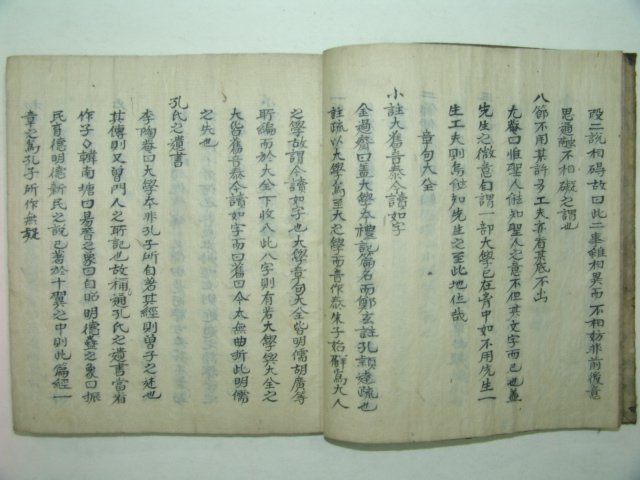 砭二說相碍故曰此二事雖相異而不相妨非前後意
思通融不相礙之謂也
八節不用某許多工夫亦看某底不出
尤菴曰惟聖人能知聖人之意不但其文字而已也蓋
先生之微意自謂一部大學已在胷中如不用先生一
生工夫則焉能知先生之至此地位哉
章句大全
小註大舊音泰今讀如字
金過齋曰盖大學本禮記篇名而鄭玄註孔穎達疏也
註疏以大學爲至大之學而音作泰朱子始解爲大人
之學故謂今讀如字也大學章句大全皆明儒胡廣等
所編而於大全下收入此八字則有若大學大全之
大皆舊音泰今讀如字而曰舊曰今太無曲折此明儒
之失也
孔氏之遺書
李陶菴曰大學本非孔子所自著其經則曾子之述也
其傳則又曾門人之所記也故稱孔氏之遺書當看
作子〇韓南塘曰易晉之象曰自昭明德蠱之象曰振
民育德明德新民之說已著於十翼之中則此篇經一
章之爲孔子所作無疑